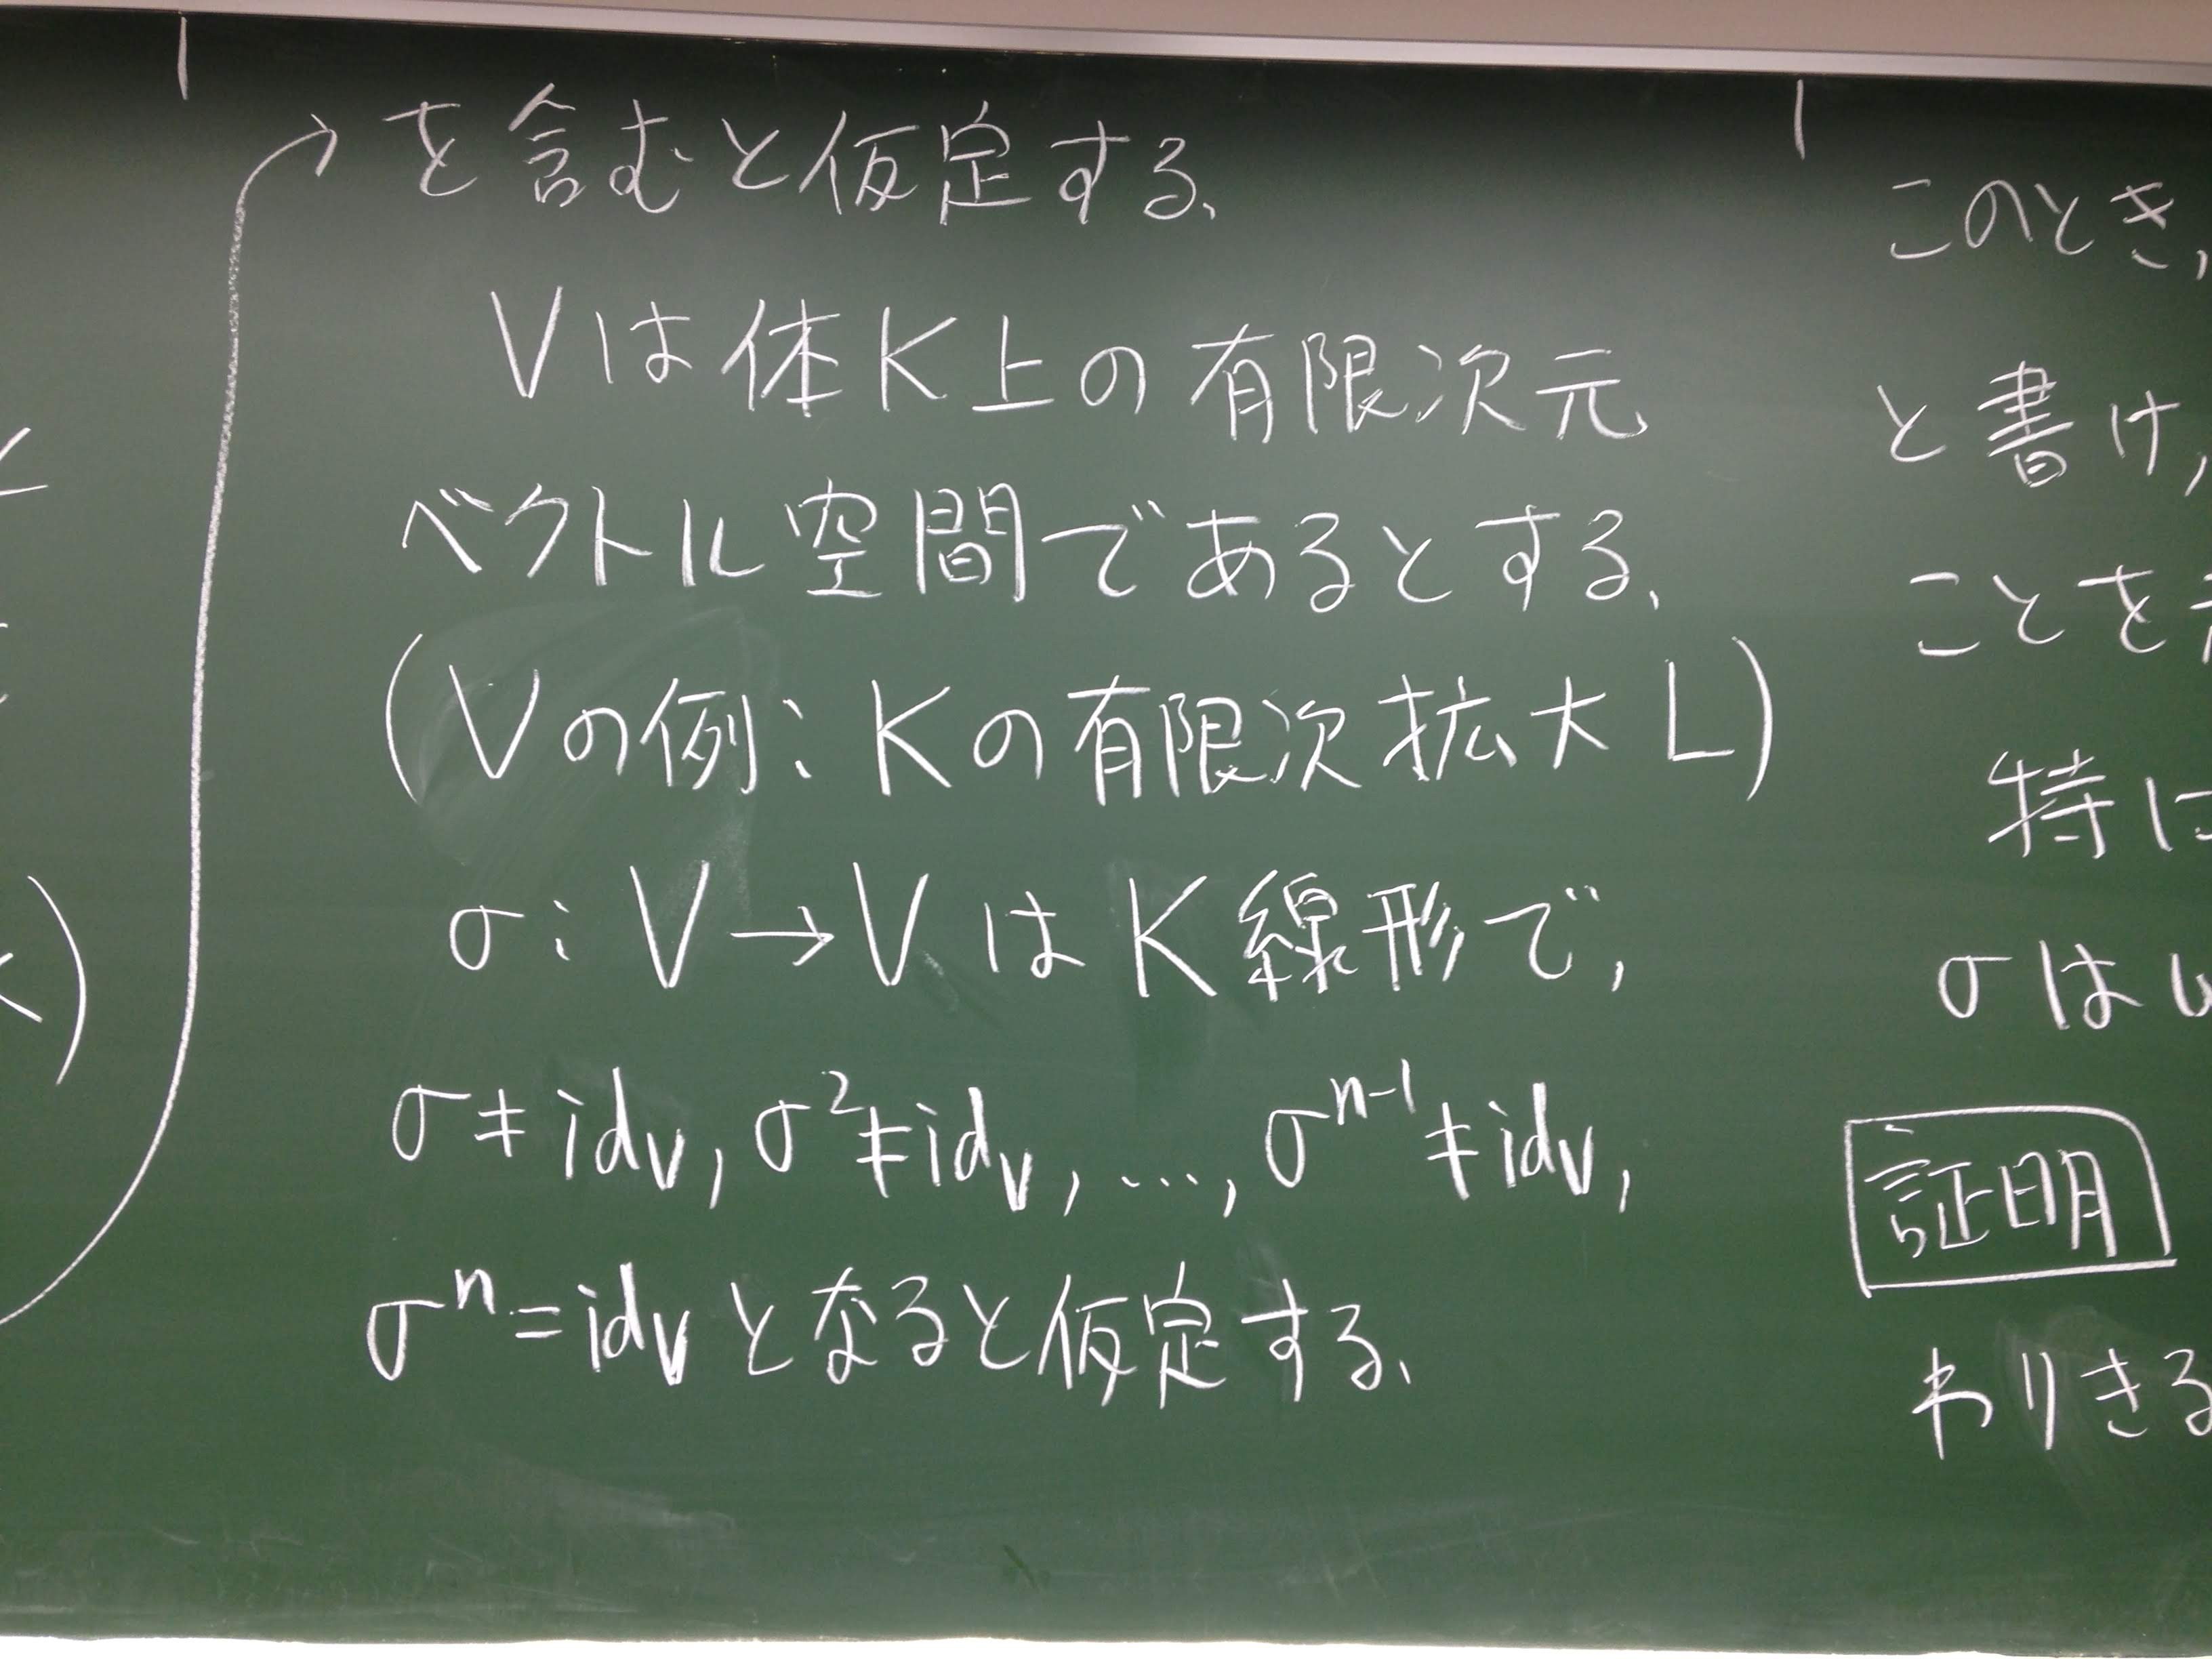 を含むと仮定する、
Vは体K上の有限次元
ベクトル空間であるとする、
(Vの例:Kの有限次拡大L)
σ:V→VはK線形で,
σ≠idv,σ²≠idv,…,σⁿ⁻¹≠idv,
σⁿ=idvとなると仮定する、
このとき,
と書け,
ことを
特に
σは
証明
わりきる